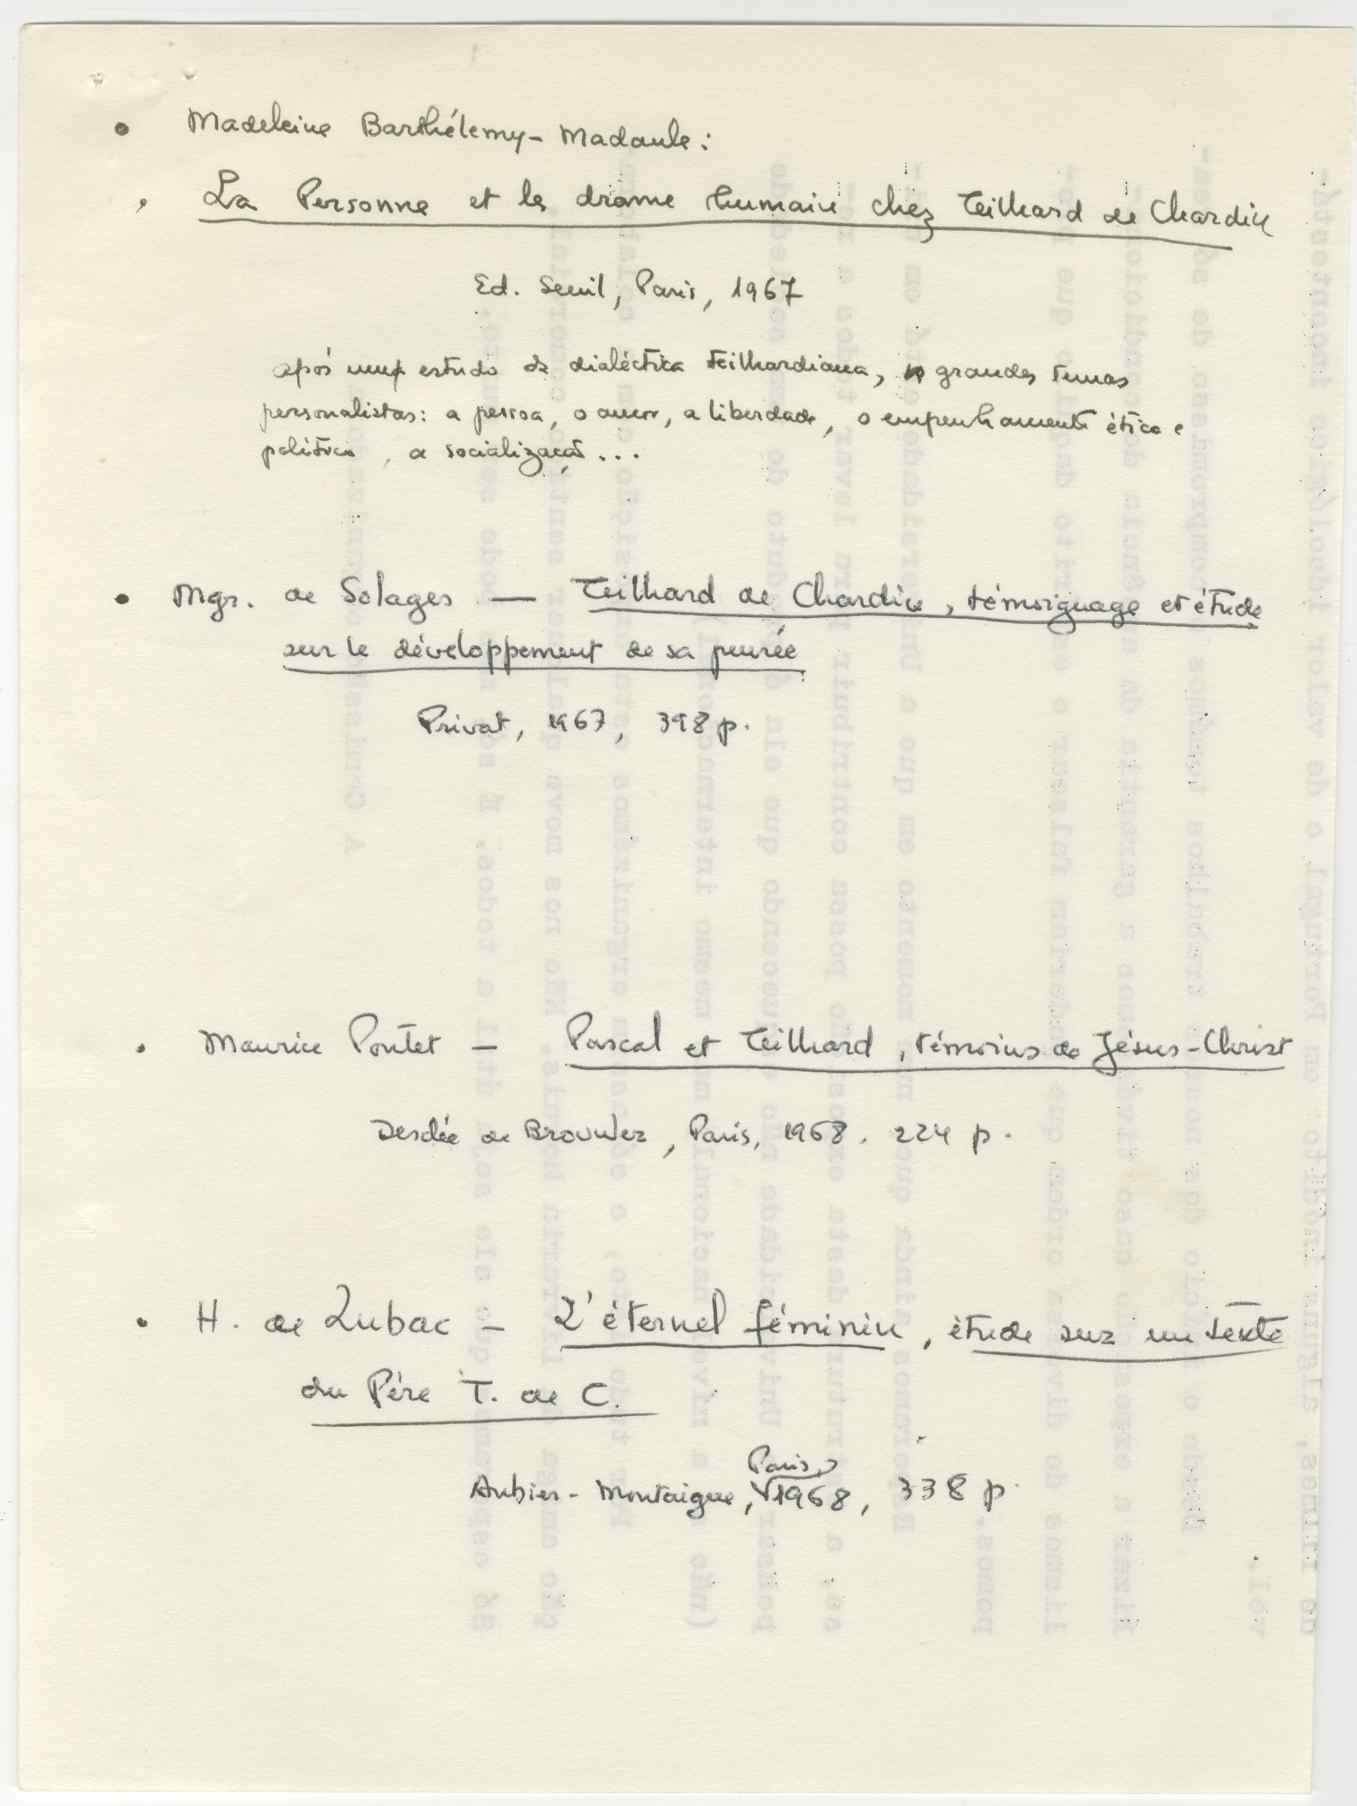 • Madeleine Barthélemy-Madaule:
La Personne et le drame humain chez Teilhard de Chardin
Ed. Seuil, Paris, 1967
após um estudo da dialéctica teilhardiana, os grandes temas
personalistas: a pessoa, o amor, a liberdade, o empenhamento ético e
político, a socialização...
• Mgr. de Solages — Teilhard de Chardin, témoignage et étude
sur le développement de sa pensée
Privat, 1967, 398 p.
• Maurice Pontet — Pascal et Teilhard, témoins de Jésus-Christ
Desclée de Brouwer, Paris, 1968. 224 p.
• H. de Lubac — L'éternel féminin, étude sur un texte
du Père T. de C.
Aubier-Montaigne, Paris, 1968, 338 p.